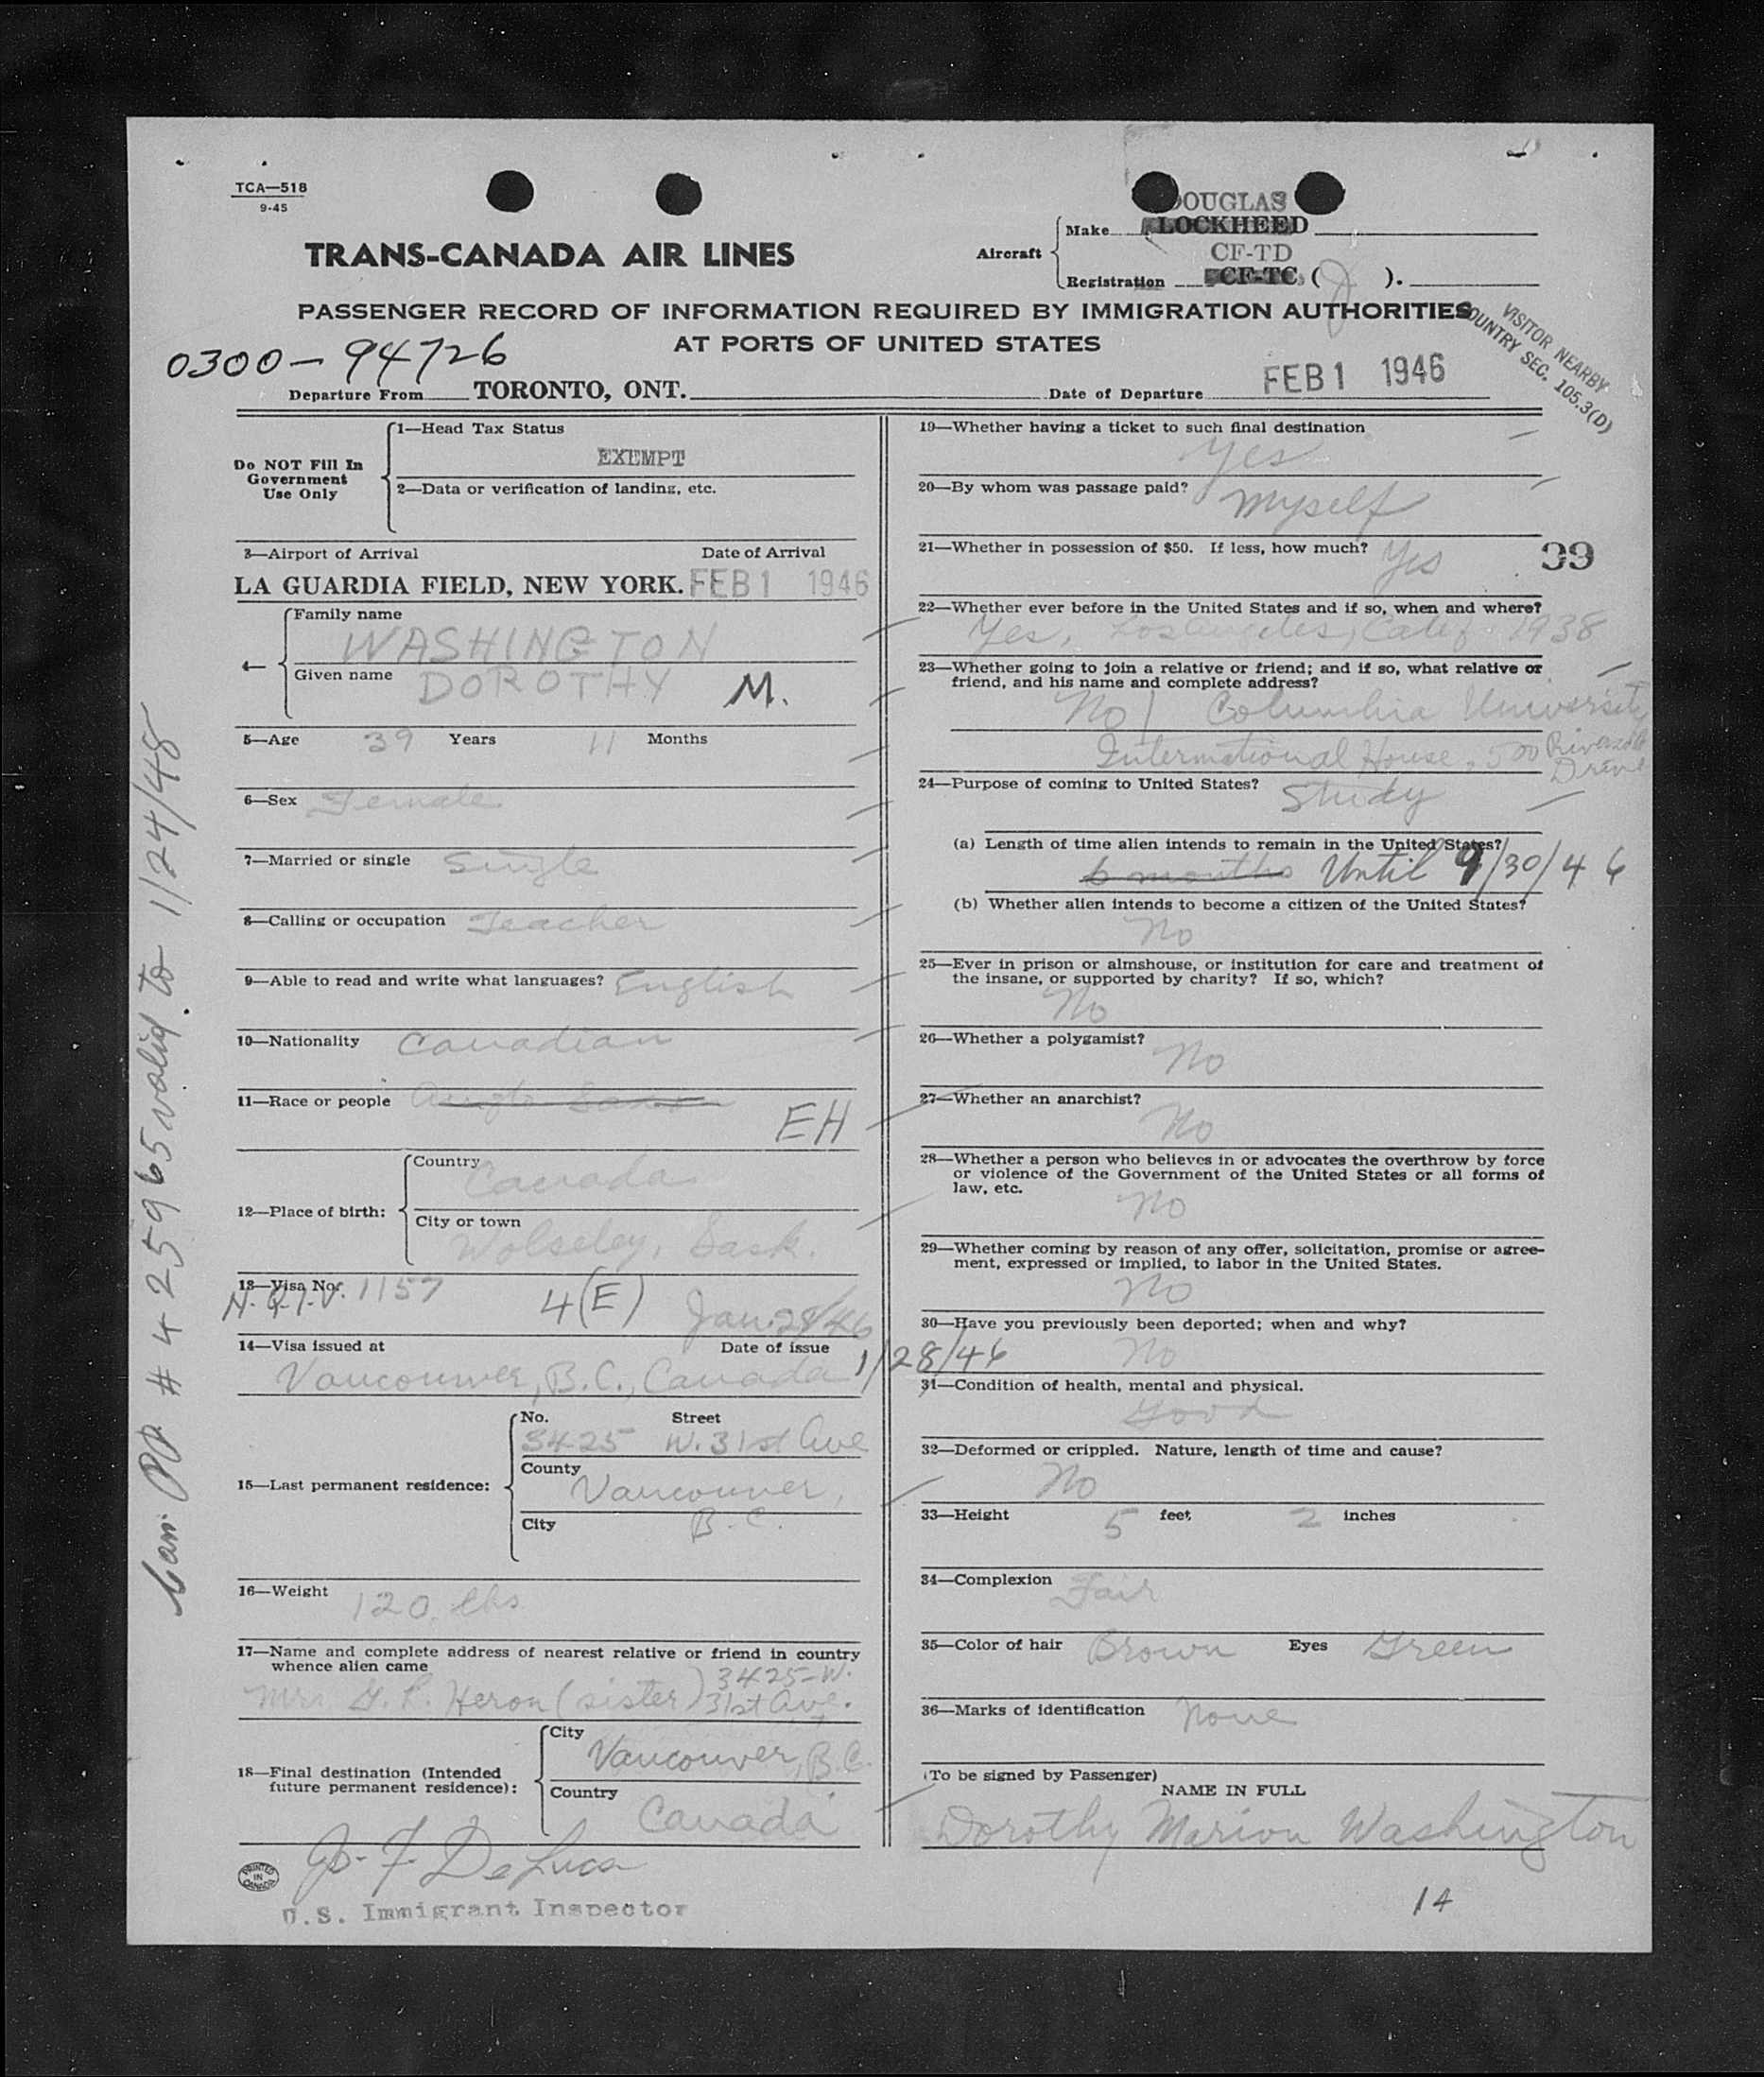 TCA—518
9-45
TRANS-CANADA AIR LINES
DOUGLAS
Aircraft
Make LOCKHEED
CF-TD
Registration CF-TC (J).
PASSENGER RECORD OF INFORMATION REQUIRED BY IMMIGRATION AUTHORITIES
AT PORTS OF UNITED STATES
VISITOR NEARBY
COUNTRY SEC. 105.3(D)
0300-94726
Departure From TORONTO, ONT.
Date of Departure FEB 1 1946
Do NOT Fill In
Government
Use Only
1—Head Tax Status
EXEMPT
2—Data or verification of landing, etc.
3—Airport of Arrival Date of Arrival
LA GUARDIA FIELD, NEW YORK. FEB 1 1946
4— Family name
WASHINGTON
Given name DOROTHY M.
5—Age 39 Years 11 Months
6—Sex Female
7—Married or single Single
8—Calling or occupation Teacher
9—Able to read and write what languages? English
10—Nationality Canadian
11—Race or people Anglo Saxon
EH
12—Place of birth:
Country
Canada
City or town
Wolseley, Sask.
13—Visa No. 1157 4(E) Jan. 28/46
N.Q.I.V.
14—Visa issued at Date of issue
Vancouver, B.C., Canada 1/28/46
15—Last permanent residence:
No. Street
3425 W. 31st Ave
County
Vancouver,
City B.C.
16—Weight 120 lbs
17—Name and complete address of nearest relative or friend in country
whence alien came
Mrs G. R. Heron (sister) 3425-W.
31st Ave.
18—Final destination (Intended
future permanent residence):
City
Vancouver, B.C.
Country
Canada
J. F. DeLuca
U.S. Immigrant Inspector
PRINTED
IN
CANADA
Can PP # 425965 valid to 1/24/48
19—Whether having a ticket to such final destination
Yes
20—By whom was passage paid? Myself
21—Whether in possession of $50. If less, how much? Yes
39
22—Whether ever before in the United States and if so, when and where?
Yes, Los Angeles, Calif 1938
23—Whether going to join a relative or friend; and if so, what relative or
friend, and his name and complete address?
No / Columbia University
International House, 500 Riverside
Drive
24—Purpose of coming to United States? Study
(a) Length of time alien intends to remain in the United States?
6 months Until 9/30/46
(b) Whether alien intends to become a citizen of the United States?
No
25—Ever in prison or almshouse, or institution for care and treatment of
the insane, or supported by charity? If so, which?
No
26—Whether a polygamist?
No
27—Whether an anarchist?
No
28—Whether a person who believes in or advocates the overthrow by force
or violence of the Government of the United States or all forms of
law, etc.
No
29—Whether coming by reason of any offer, solicitation, promise or agree-
ment, expressed or implied, to labor in the United States.
No
30—Have you previously been deported; when and why?
No
31—Condition of health, mental and physical.
Good
32—Deformed or crippled. Nature, length of time and cause?
No
33—Height 5 feet 2 inches
34—Complexion Fair
35—Color of hair Brown Eyes Green
36—Marks of identification None
(To be signed by Passenger)
NAME IN FULL
Dorothy Marion Washington
14